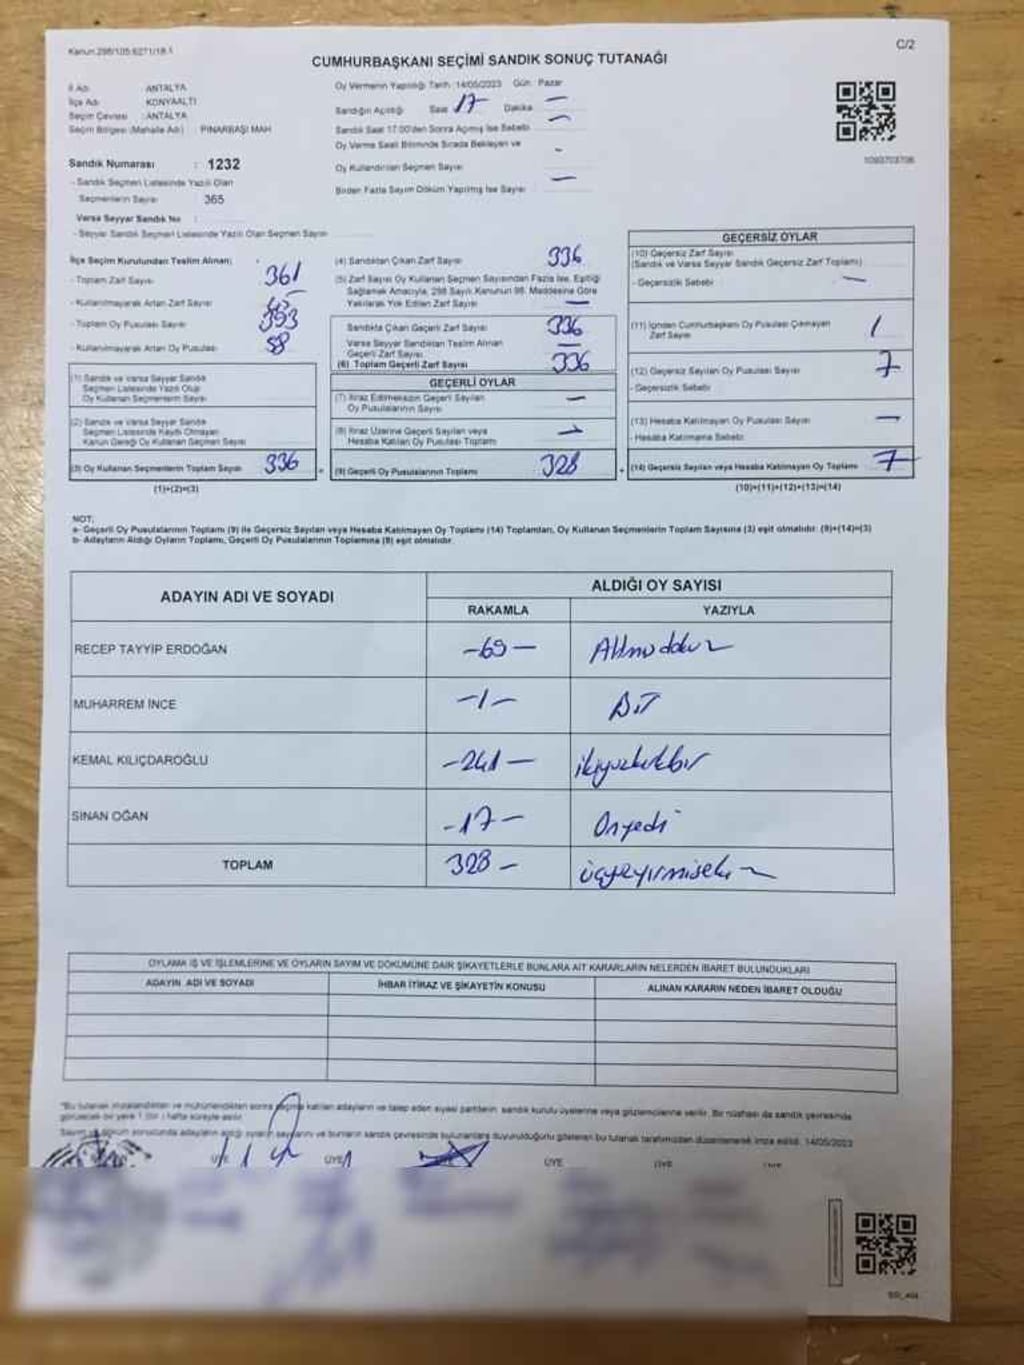 Kanun:298/105:6271/18.1
C/2
CUMHURBAŞKANI SEÇİMİ SANDIK SONUÇ TUTANAĞI
İl Adı : ANTALYA
İlçe Adı : KONYAALTI
Seçim Çevresi : ANTALYA
Seçim Bölgesi (Mahalle Adı) : PINARBAŞI MAH
Oy Vermenin Yapıldığı Tarih :14/05/2023 Gün : Pazar
Sandığın Açıldığı Saat 17 Dakika —
Sandık Saat 17.00'den Sonra Açılmış İse Sebebi —
Oy Verme Saati Bitiminde Sırada Bekleyen ve
Oy Kullandırılan Seçmen Sayısı -
Birden Fazla Sayım Döküm Yapılmış İse Sayısı —
1093703706
Sandık Numarası : 1232
- Sandık Seçmen Listesinde Yazılı Olan
Seçmenlerin Sayısı 365
Varsa Seyyar Sandık No :
- Seyyar Sandık Seçmen Listesinde Yazılı Olan Seçmen Sayısı
İlçe Seçim Kurulundan Teslim Alınan;
- Toplam Zarf Sayısı 361
- Kullanılmayarak Artan Zarf Sayısı
- Toplam Oy Pusulası Sayısı
- Kullanılmayarak Artan Oy Pusulası 58
(1) Sandık ve Varsa Seyyar Sandık
Seçmen Listesinde Yazılı Olup
Oy Kullanan Seçmenlerin Sayısı
(2) Sandık ve Varsa Seyyar Sandık
Seçmen Listesinde Kayıtlı Olmayan
Kanun Gereği Oy Kullanan Seçmen Sayısı
(3) Oy Kullanan Seçmenlerin Toplam Sayısı 336
(1)+(2)=(3)
(4) Sandıktan Çıkan Zarf Sayısı 336
(5) Zarf Sayısı Oy Kullanan Seçmen Sayısından Fazla İse, Eşitliği
Sağlamak Amacıyla, 298 Sayılı Kanunun 98. Maddesine Göre
Yakılarak Yok Edilen Zarf Sayısı —
Sandıkta Çıkan Geçerli Zarf Sayısı 336
Varsa Seyyar Sandıktan Teslim Alınan
Geçerli Zarf Sayısı —
(6) Toplam Geçerli Zarf Sayısı 336
GEÇERLİ OYLAR
(7) İtiraz Edilmeksizin Geçerli Sayılan
Oy Pusulalarının Sayısı —
(8) İtiraz Üzerine Geçerli Sayılan veya
Hesaba Katılan Oy Pusulası Toplamı —
(9) Geçerli Oy Pusulalarının Toplamı 328
GEÇERSİZ OYLAR
(10) Geçersiz Zarf Sayısı
(Sandık ve Varsa Seyyar Sandık Geçersiz Zarf Toplamı)
- Geçersizlik Sebebi —
(11) İçinden Cumhurbaşkanı Oy Pusulası Çıkmayan
Zarf Sayısı 1
(12) Geçersiz Sayılan Oy Pusulası Sayısı 7
- Geçersizlik Sebebi
(13) Hesaba Katılmayan Oy Pusulası Sayısı —
- Hesaba Katılmama Sebebi
(14) Geçersiz Sayılan veya Hesaba Katılmayan Oy Toplamı 7
(10)+(11)+(12)+(13)=(14)
NOT:
a- Geçerli Oy Pusulalarının Toplamı (9) ile Geçersiz Sayılan veya Hesaba Katılmayan Oy Toplamı (14) Toplamları, Oy Kullanan Seçmenlerin Toplam Sayısına (3) eşit olmalıdır. (9)+(14)=(3)
b- Adayların Aldığı Oyların Toplamı, Geçerli Oy Pusulalarının Toplamına (9) eşit olmalıdır.
ADAYIN ADI VE SOYADI
ALDIĞI OY SAYISI
RAKAMLA YAZIYLA
RECEP TAYYİP ERDOĞAN -69— Altmışdokuz
MUHARREM İNCE -1- BİT
KEMAL KILIÇDAROĞLU -241— ikiyüzkırkbir
SİNAN OĞAN -17- Onyedi
TOPLAM 328- üçyüzyirmisekiz
OYLAMA İŞ VE İŞLEMLERİNE VE OYLARIN SAYIM VE DÖKÜMÜNE DAİR ŞİKAYETLERLE BUNLARA AİT KARARLARIN NELERDEN İBARET BULUNDUKLARI
ADAYIN ADI VE SOYADI İHBAR İTİRAZ VE ŞİKAYETİN KONUSU ALINAN KARARIN NEDEN İBARET OLDUĞU
*Bu tutanak imzalandıktan ve mühürlendikten sonra seçime katılan adayların ve talep eden siyasi partilerin sandık kurulu üyelerine veya gözlemcilerine verilir. Bir nüshası da sandık çevresinde
görülecek bir yere 1 (bir) hafta süreyle asılır.
Sayım ve döküm sonucunda adayların aldığı oyların sayılarını ve bunların sandık çevresinde bulunanlara duyurulduğunu gösteren bu tutanak tarafımızdan düzenlenerek imza edildi. 14/05/2023
ÜYE ÜYE ÜYE ÜYE ÜYE